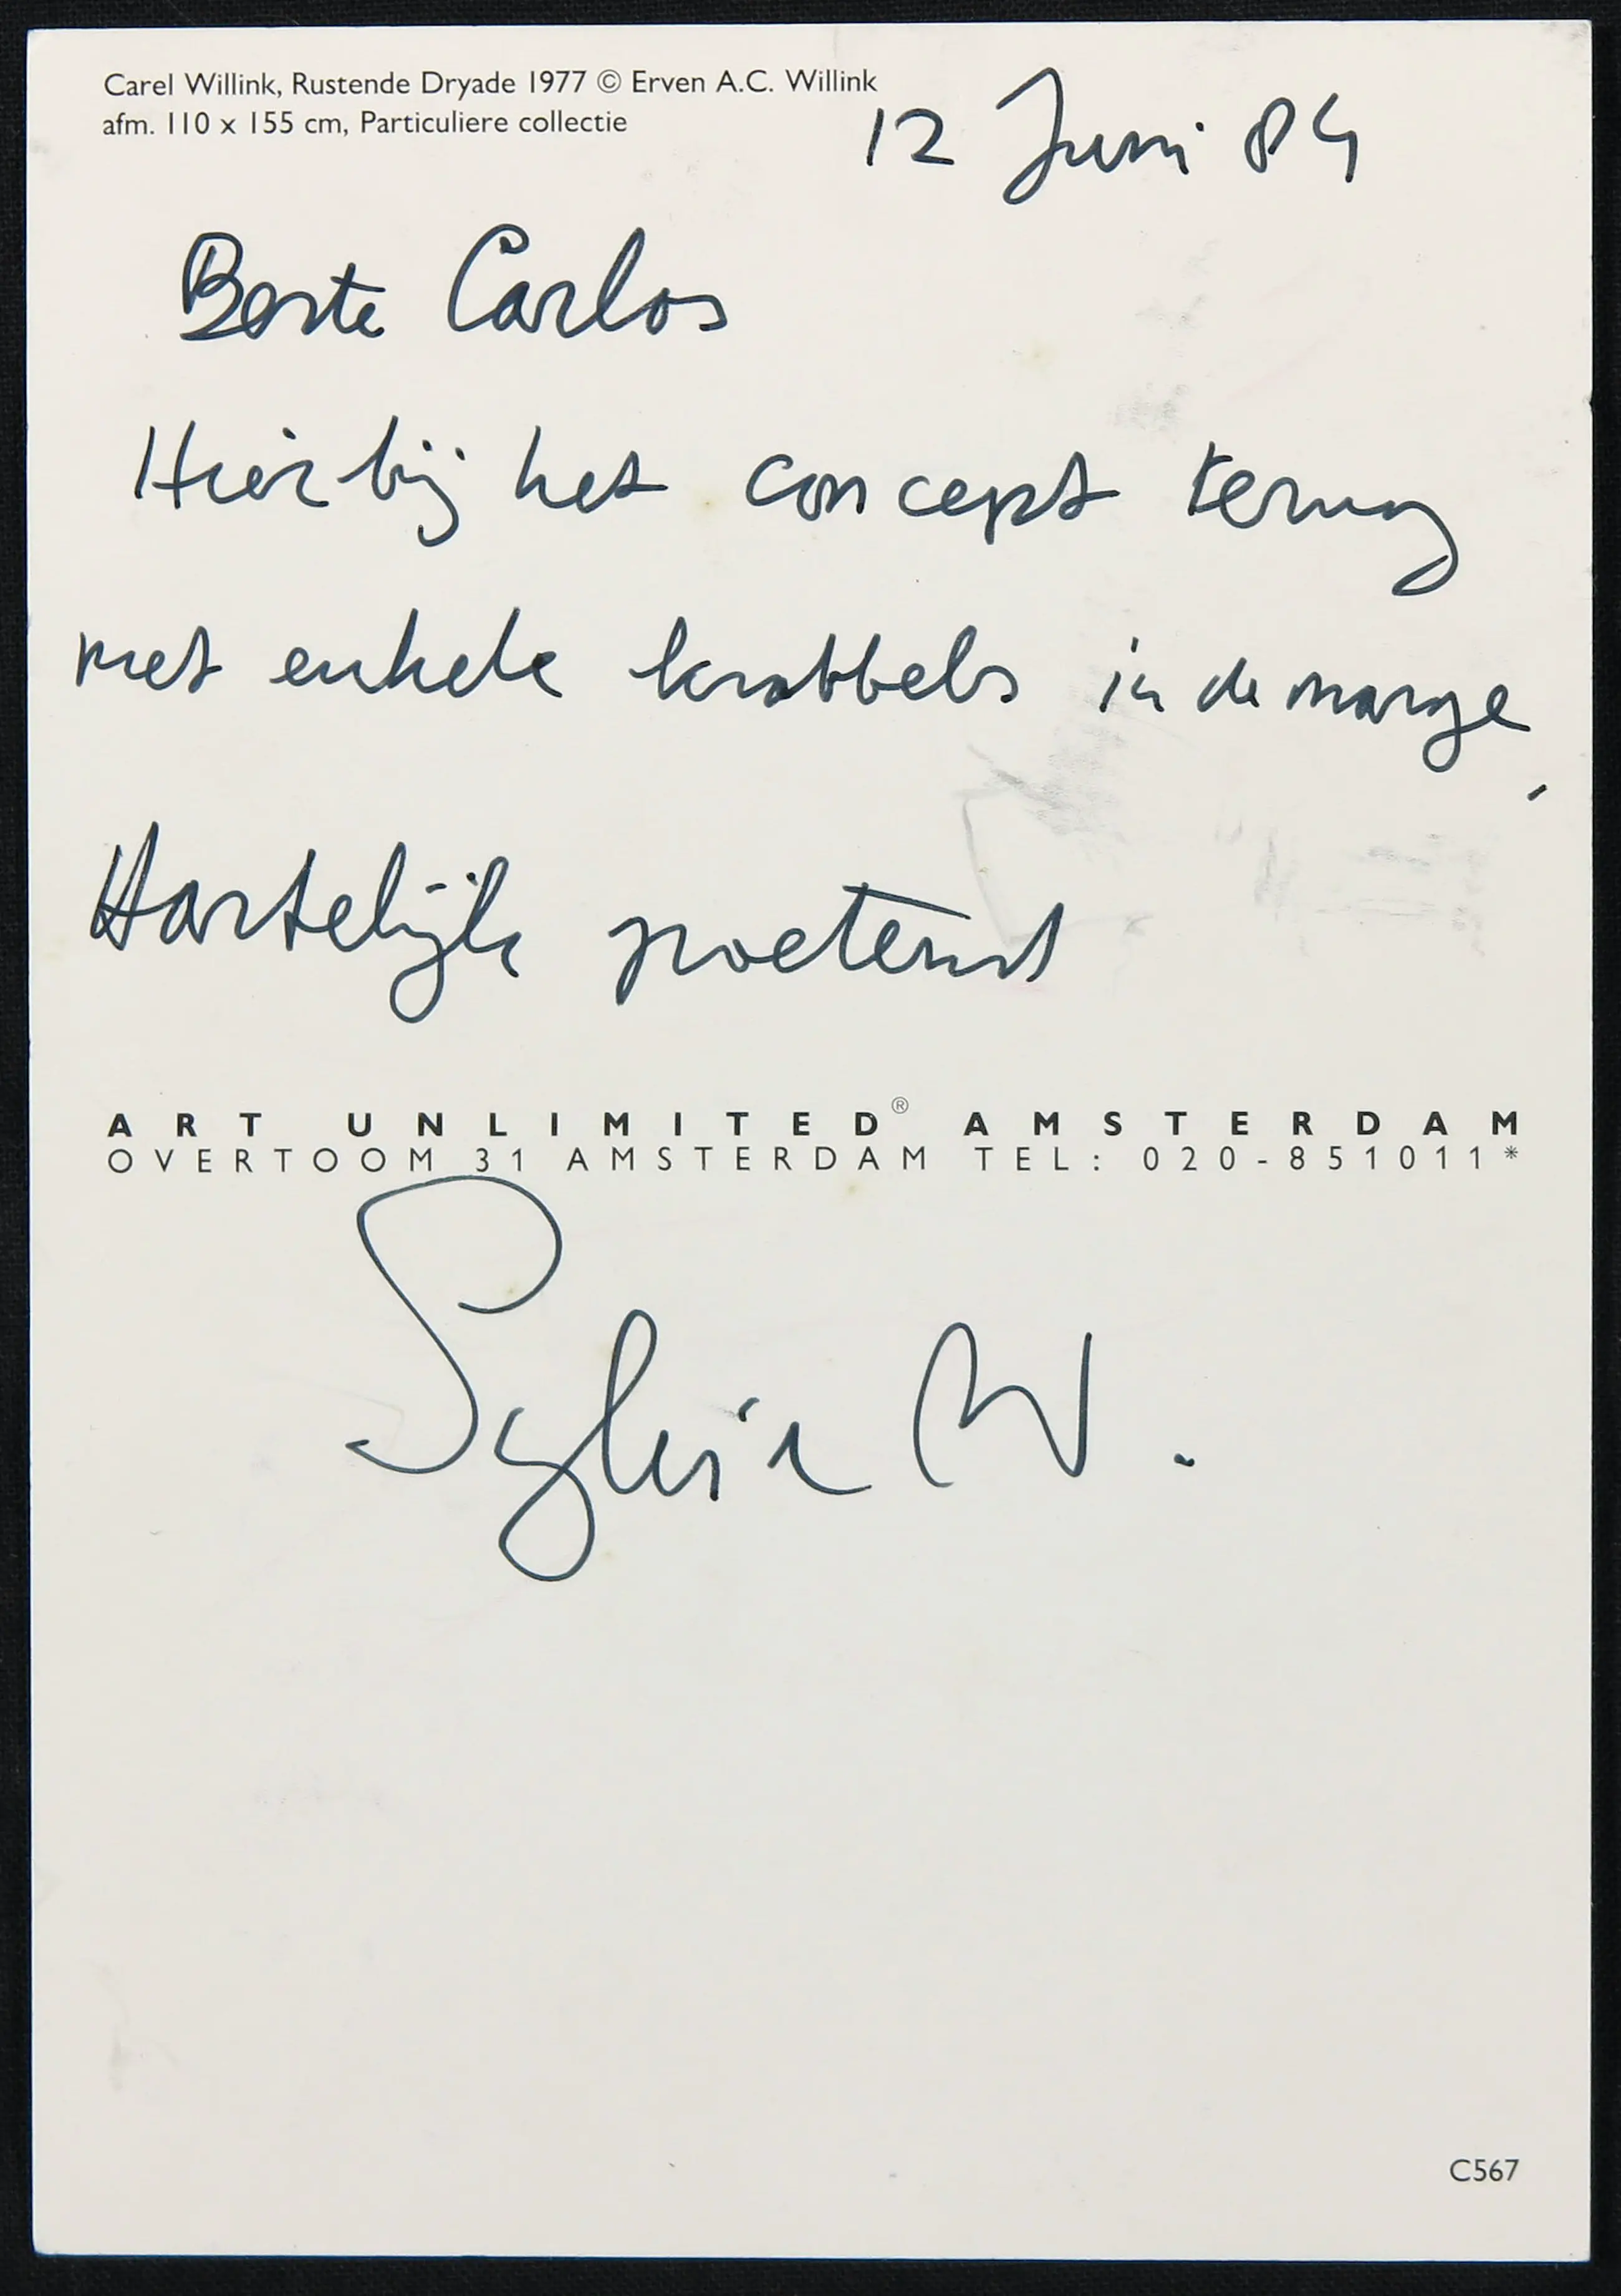 Carel Willink, Rustende Dryade 1977 © Erven A.C. Willink
afm. 110 x 155 cm, Particuliere collectie
12 Juni 84
Beste Carlos
Hierbij het concept terug
met enkele krabbels in de marge,
Hartelijk groetend
ART UNLIMITED® AMSTERDAM
OVERTOOM 31 AMSTERDAM TEL: 020-851011*
Sylvia W.
C567